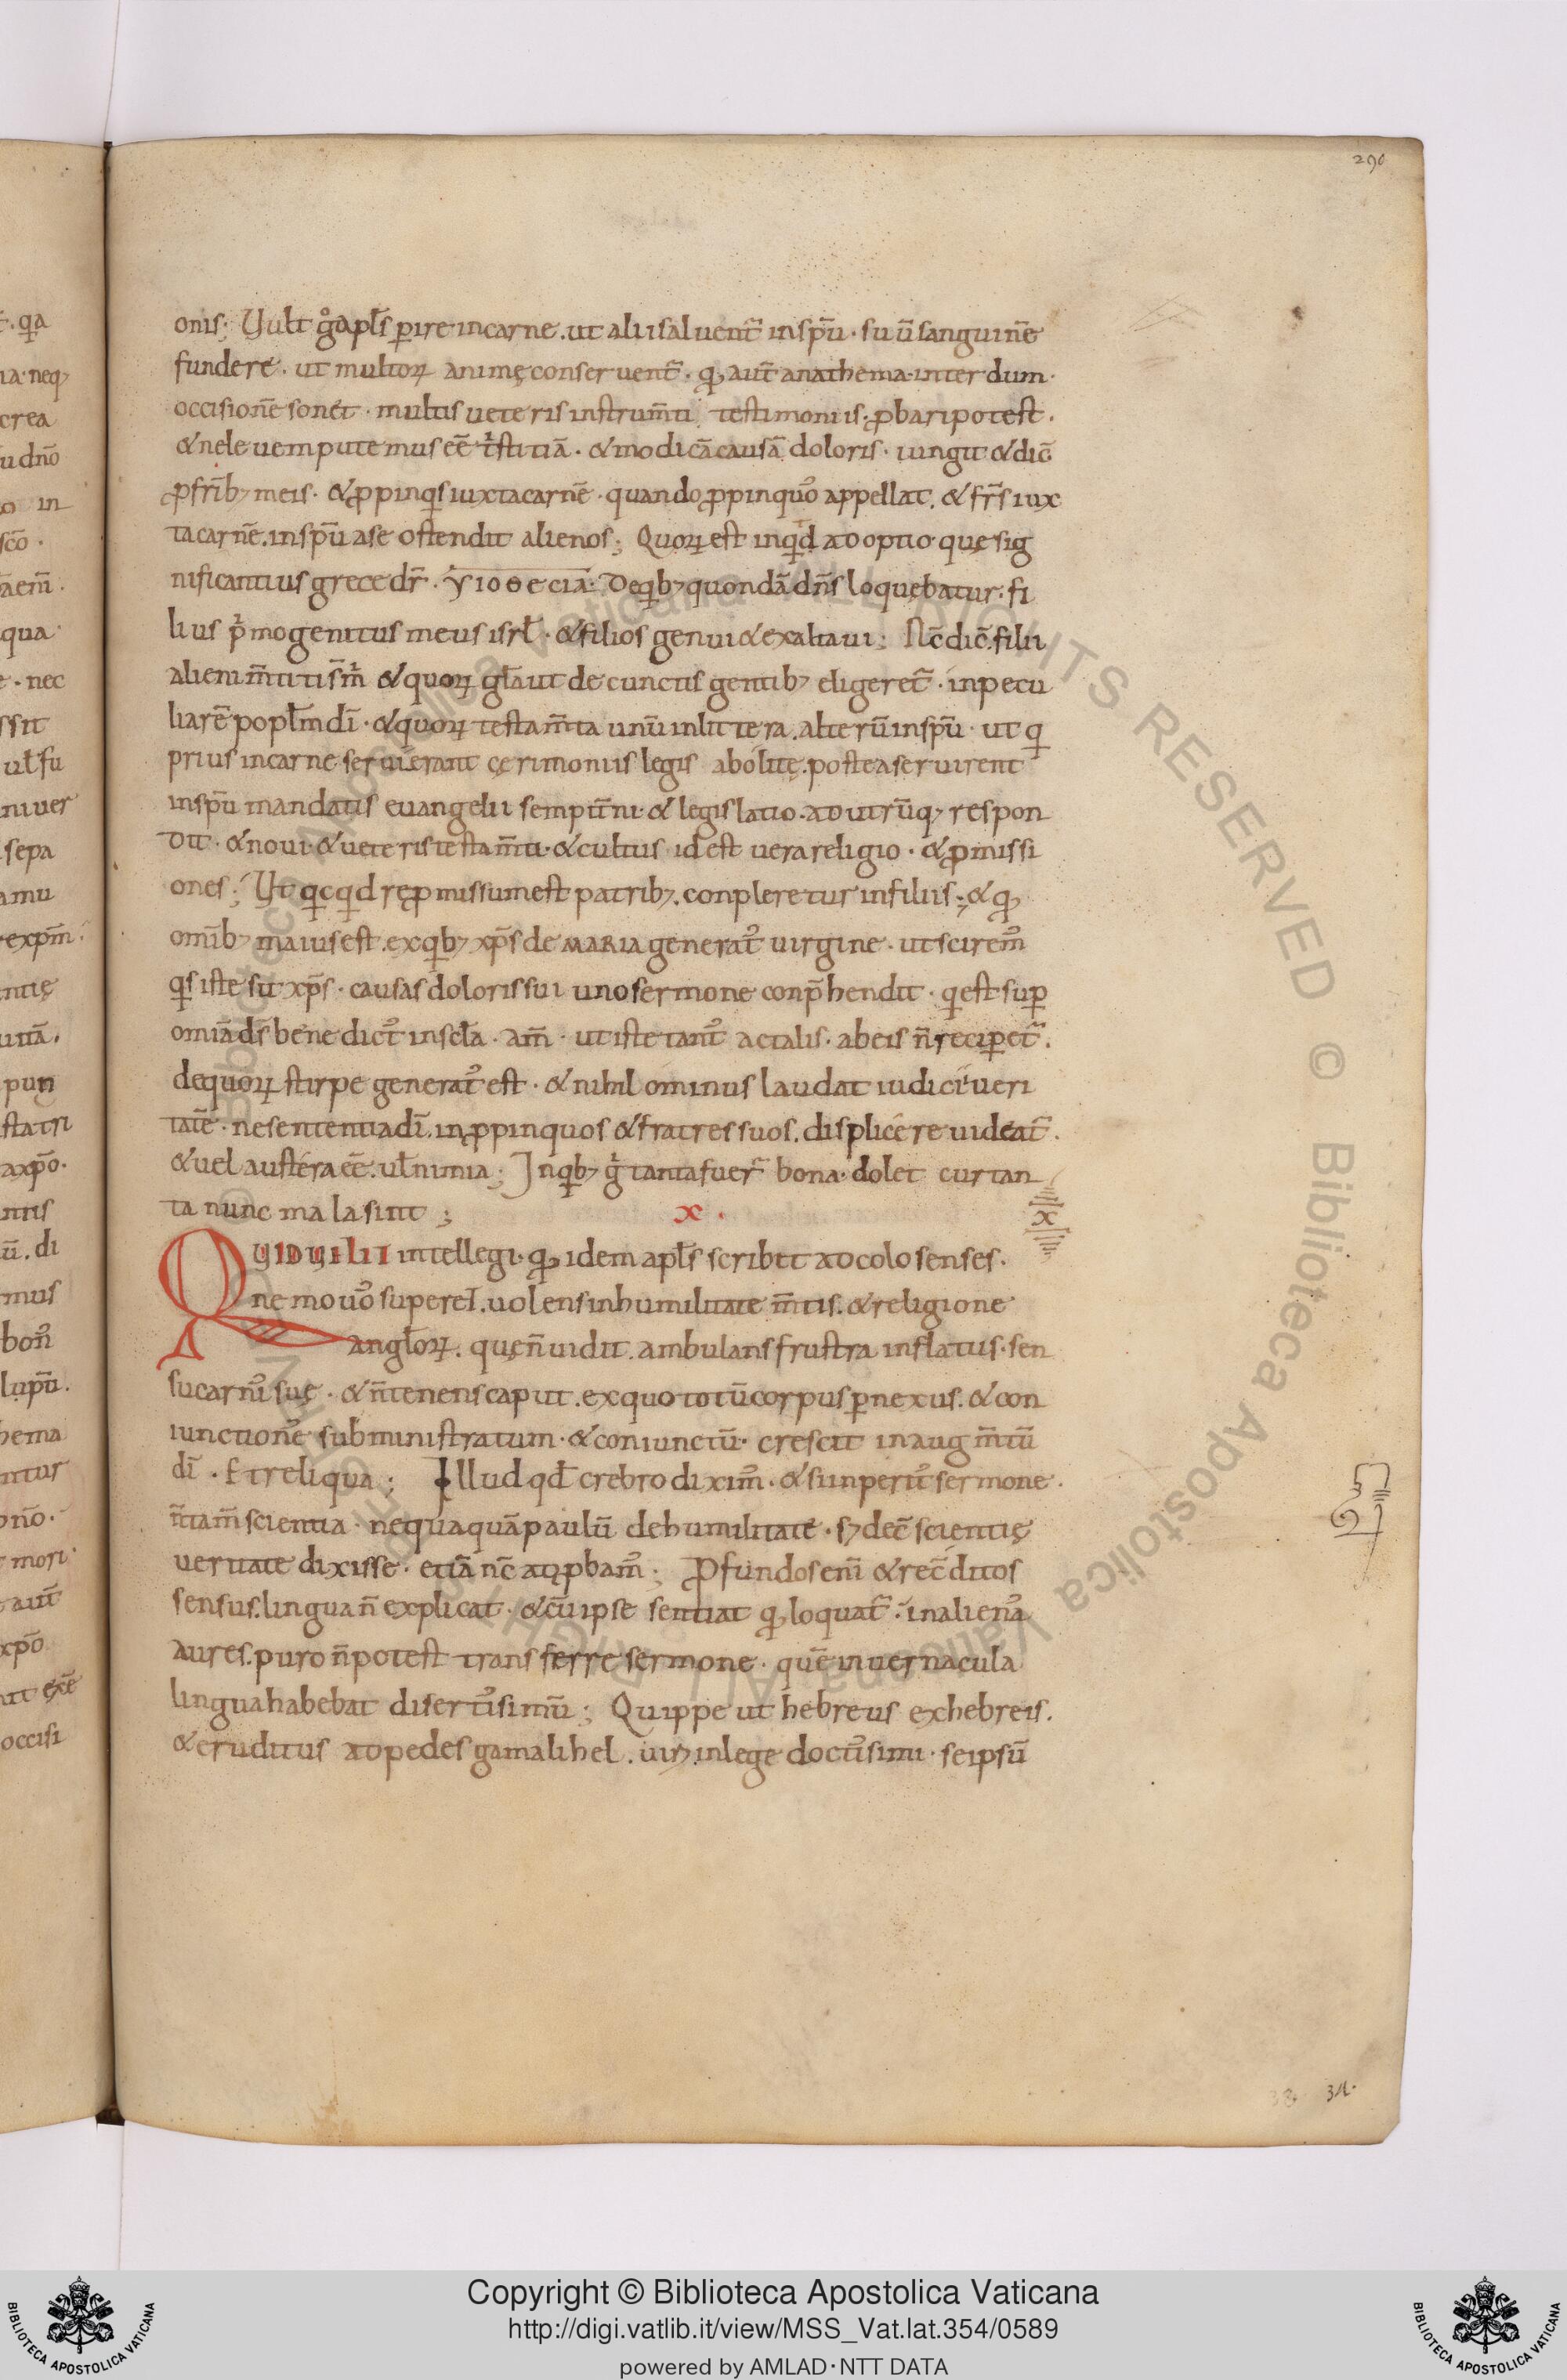 290
onis; Uult g̊ apl̅s ꝑire in carne. ut alii saluent᷑ in sp̅u. suū sanguinē
fundere. ut multoꝝ animę conseruent᷑. qđ aut̅ anathema interdum
occisionē sonet. multis ueteris instrum̅ti testimoniis ꝓbari potest.
& ne leuem putemus eē tͥstitiā. & modicā causā doloris. iungit & dic̅
ꝓ fr̅ib; meis. & ꝓpinqͥs iuxta carnē. quando ꝓpinquos appellat. & fr̅s iux
ta carnē. in sp̅u a se ostendit alienos; Quoꝝ est inqͥd adoptio quę sig
nificantius grece dr̅. YIOΘECIA. De qͥb; quondā dn̅s loquebatur. fi
lius pͥmogenitus meus isrł. & filios genui & exaltaui; Nc̅ dic̅. filii
alieni m̅titi s̅ mͥ & quoꝝ gl̅a ut de cunctis gentib; eligeret᷑. in pecu
liarē popl̅m dī. & quoꝝ testam̅ta unū in littera. alterū in sp̅u. ut qͥ
prius in carne seruierant cęrimoniis legis abolitę. postea seruirent
in sp̅u mandatis euangelii sempit̅ni. & legislatio. ad utrūq; respon
dit. & noui. & ueteris testam̅ti. & cultus id est uera religio. & ꝓmissi
ones; Ut qͥcqͥd rępmissum est patrib;. conpleretur in filiis; & qđ
om̅ib; maius est. ex qͥb; xp̅s de MARIA generat᷒ uirgine. ut scirem᷒
qͥs iste sit xp̅s. causas doloris sui uno sermone conp̅hendit. qͥ est suꝑ
omīa d̅s benedict᷒ in scl̅a. am̅. ut iste tant᷒ ac talis. ab eis n̅ reciꝑet᷑.
de quoꝝ stirpe generat᷒ est. & nihilominus laudat iudicii ueri
tatē. ne sententia dī. in ꝓpinquos & fratres suos. displicere uideat᷑.
& uel austera eē. uł nimia; In qͥb; gͥ tanta fuer̅ bona. dolet cur tan
ta nunc mala sint;
x.
x
QUID UELIT intellegi. qđ idem apl̅s scribet ad colosenses.
nemo uos superet. uolens in humilitate m̅tis. & religione
angl̅oꝝ. quę n̅ uidit. ambulans frustra inflatus. sen
su carnis suę. & n̅ tenens caput. ex quo totū corpus ꝑ nexus. & con
iunctiones subministratum. & coniunctū. crescit in augm̅tū
dī. Et reliqua; Illud qđ crebro dixim᷒. & si inperit᷒ sermone.
n̅ tam̅ scientia. nequaquā paulū de humilitate. s; de c̅scientię
ueritate dixisse. etiā nc̅ adꝓbam᷒; Ꝓfundos eni̅ & rec̅ditos
sensus. lingua n̅ explicat. & cū ipse sentiat qđ loquat᷑. in alienas
aures. puro n̅ potest transferre sermone. quē in uernacula
lingua habebat disertissimū; Quippe ut hebreus ex hebreis.
& eruditus ad pedes gamalihel. uiri in lege doctissimi. seipsū
34.
Copyright © Biblioteca Apostolica Vaticana
http://digi.vatlib.it/view/MSS_Vat.lat.354/0589
powered by AMLAD·NTT DATA
BIBLIOTECA APOSTOLICA VATICANA
BIBLIOTECA APOSTOLICA VATICANA